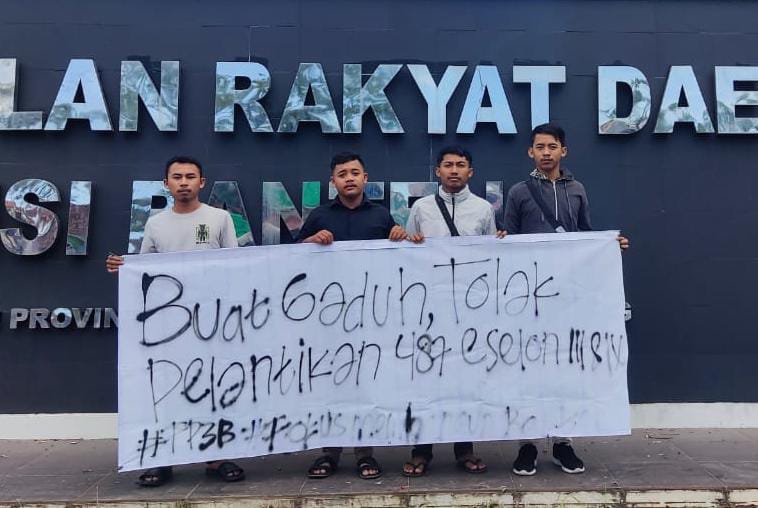 LAN RAKYAT DAE
SI BANTEN
PROVIN
G
Buat Gaduh, Tolak
Pelantikan 487 eselon III & IV